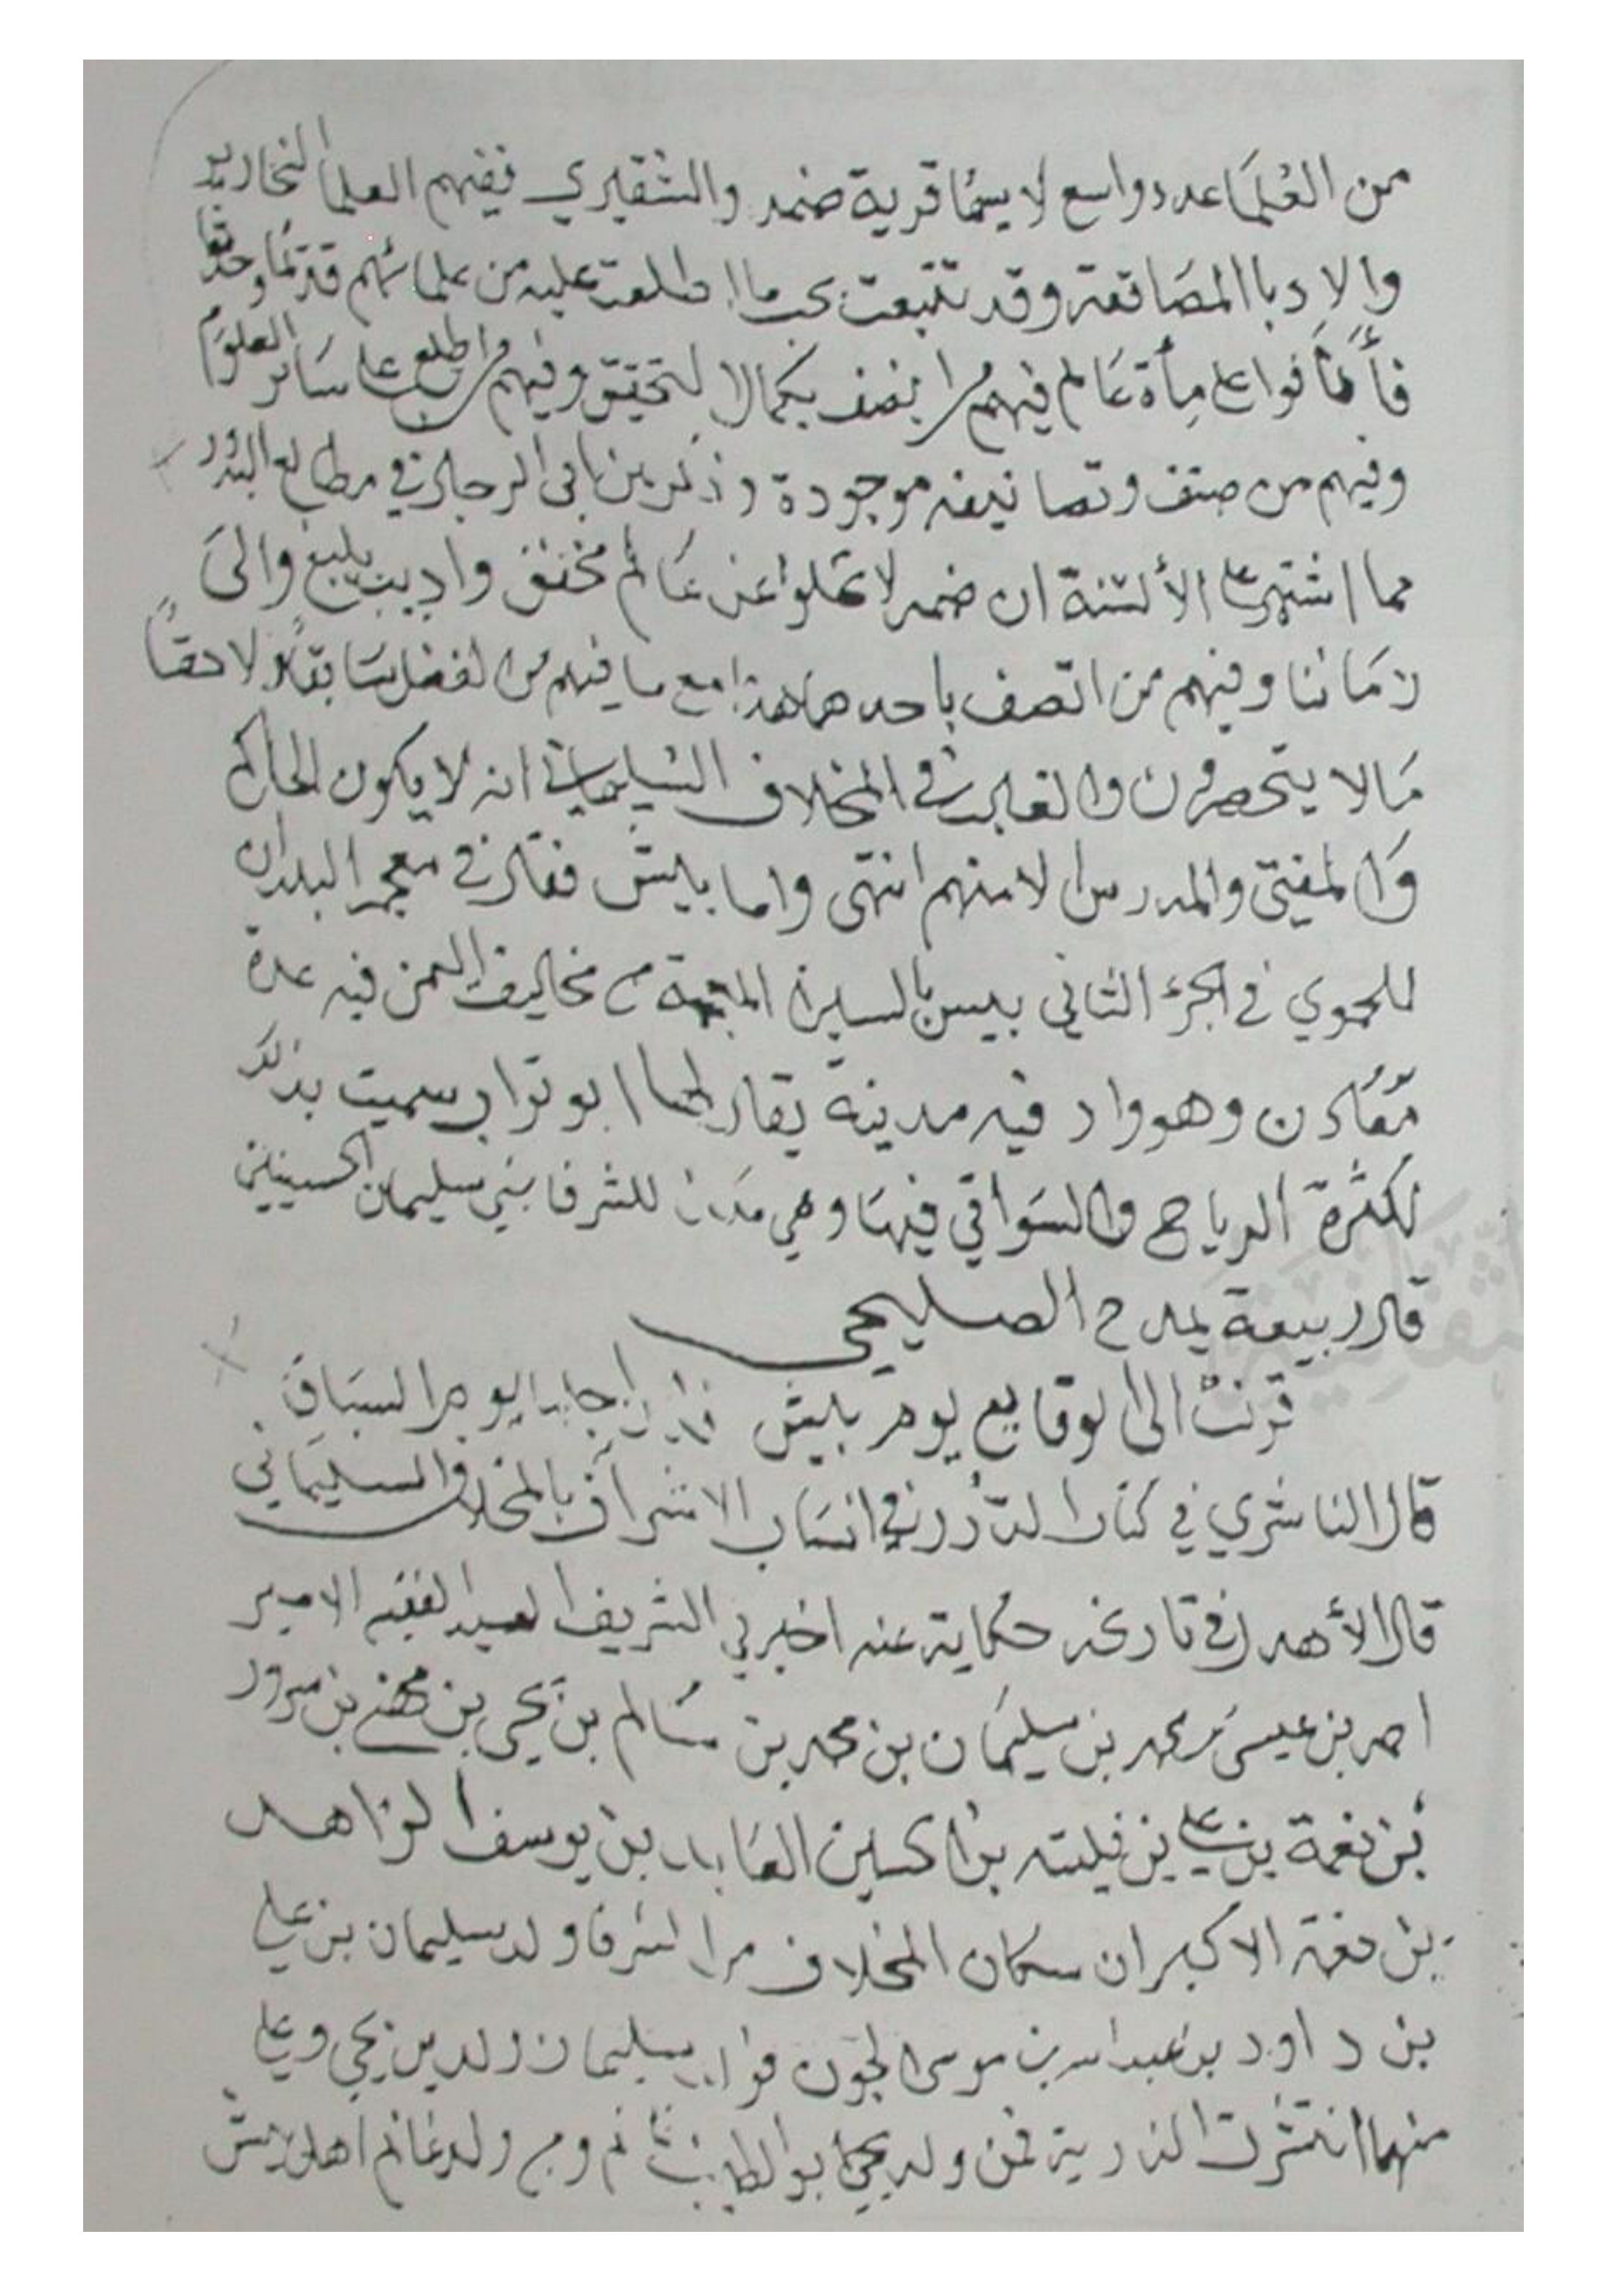 من العُلمَا عدد واسع لا سيمُا قرية ضمد والشقيري ففيهم العلما النحارير
والادبا المصَاقعة وقد تتبعت بحسب ما اطلعت عليه من علمائهم قديمًا وحديثا
فأنافوا على مأة عَالم فيهم من اتصف بكمال التحقيق وفيهم من اطلع على سَائر العلوم
وفيهم من صنف وتصانيفه موجودة وذكر بن ابى الرجال في مطالع البدور
مما اشتهر على الألسنة ان ضمد لا تخلوا عن عَالم محقق واديب بليغ والىَ
زمَاننا وفيهم من اتصف باحدهما هذا مع ما فيهم من الفضل سَابقًا ولاحقًا
مَالا ينحصر والغالب في المخلاف السليماني انه لا يكون الحاكم
وَالمفتي والمدرس الا منهم انتهى واما بيش فقال في معجم البلدان
للحموي في الجزء الثاني بيس بالسين المبهمة من مخاليف اليمن فيه عدة
مَعَادن وهو واد فيه مدينة يقال لها ابو تراب سميت بذلك
لكثرة الرياح والسَوافي فيهَا وهي للشرفا بني سليمان الحسينيين
قال ربيعة يمدح الصليحي
قرنتْ الى الوقايع يوم بيش يوم السبَاق
قال الناشري في كتاب الدُرر في انسَاب الاشراف بالمخلاف السليمَاني
قال الأهدل في تاريخه حكاية عنه اخبرني الشريف السيد الفقيه الامير
احمد بن عيسىَ بن محمد بن سليمَان بن محمد بن سَالم بن يحيى بن مهنى بن سرور
بن نعمة بن علي بن فليته بن الحسين العَابد بن يوسف الزاهد
بن نعمة الاكبر ان سكان المخلاف من الشرفا ولد سليمان بن علي
بن داود بن عبدالله بن موسى الجَون سليمان ولدين يحيى وعلي
منهما انتشرت الذرية فمن ولد يحيى ابو الطيب غانم ومن ولد غانم اهل بيش